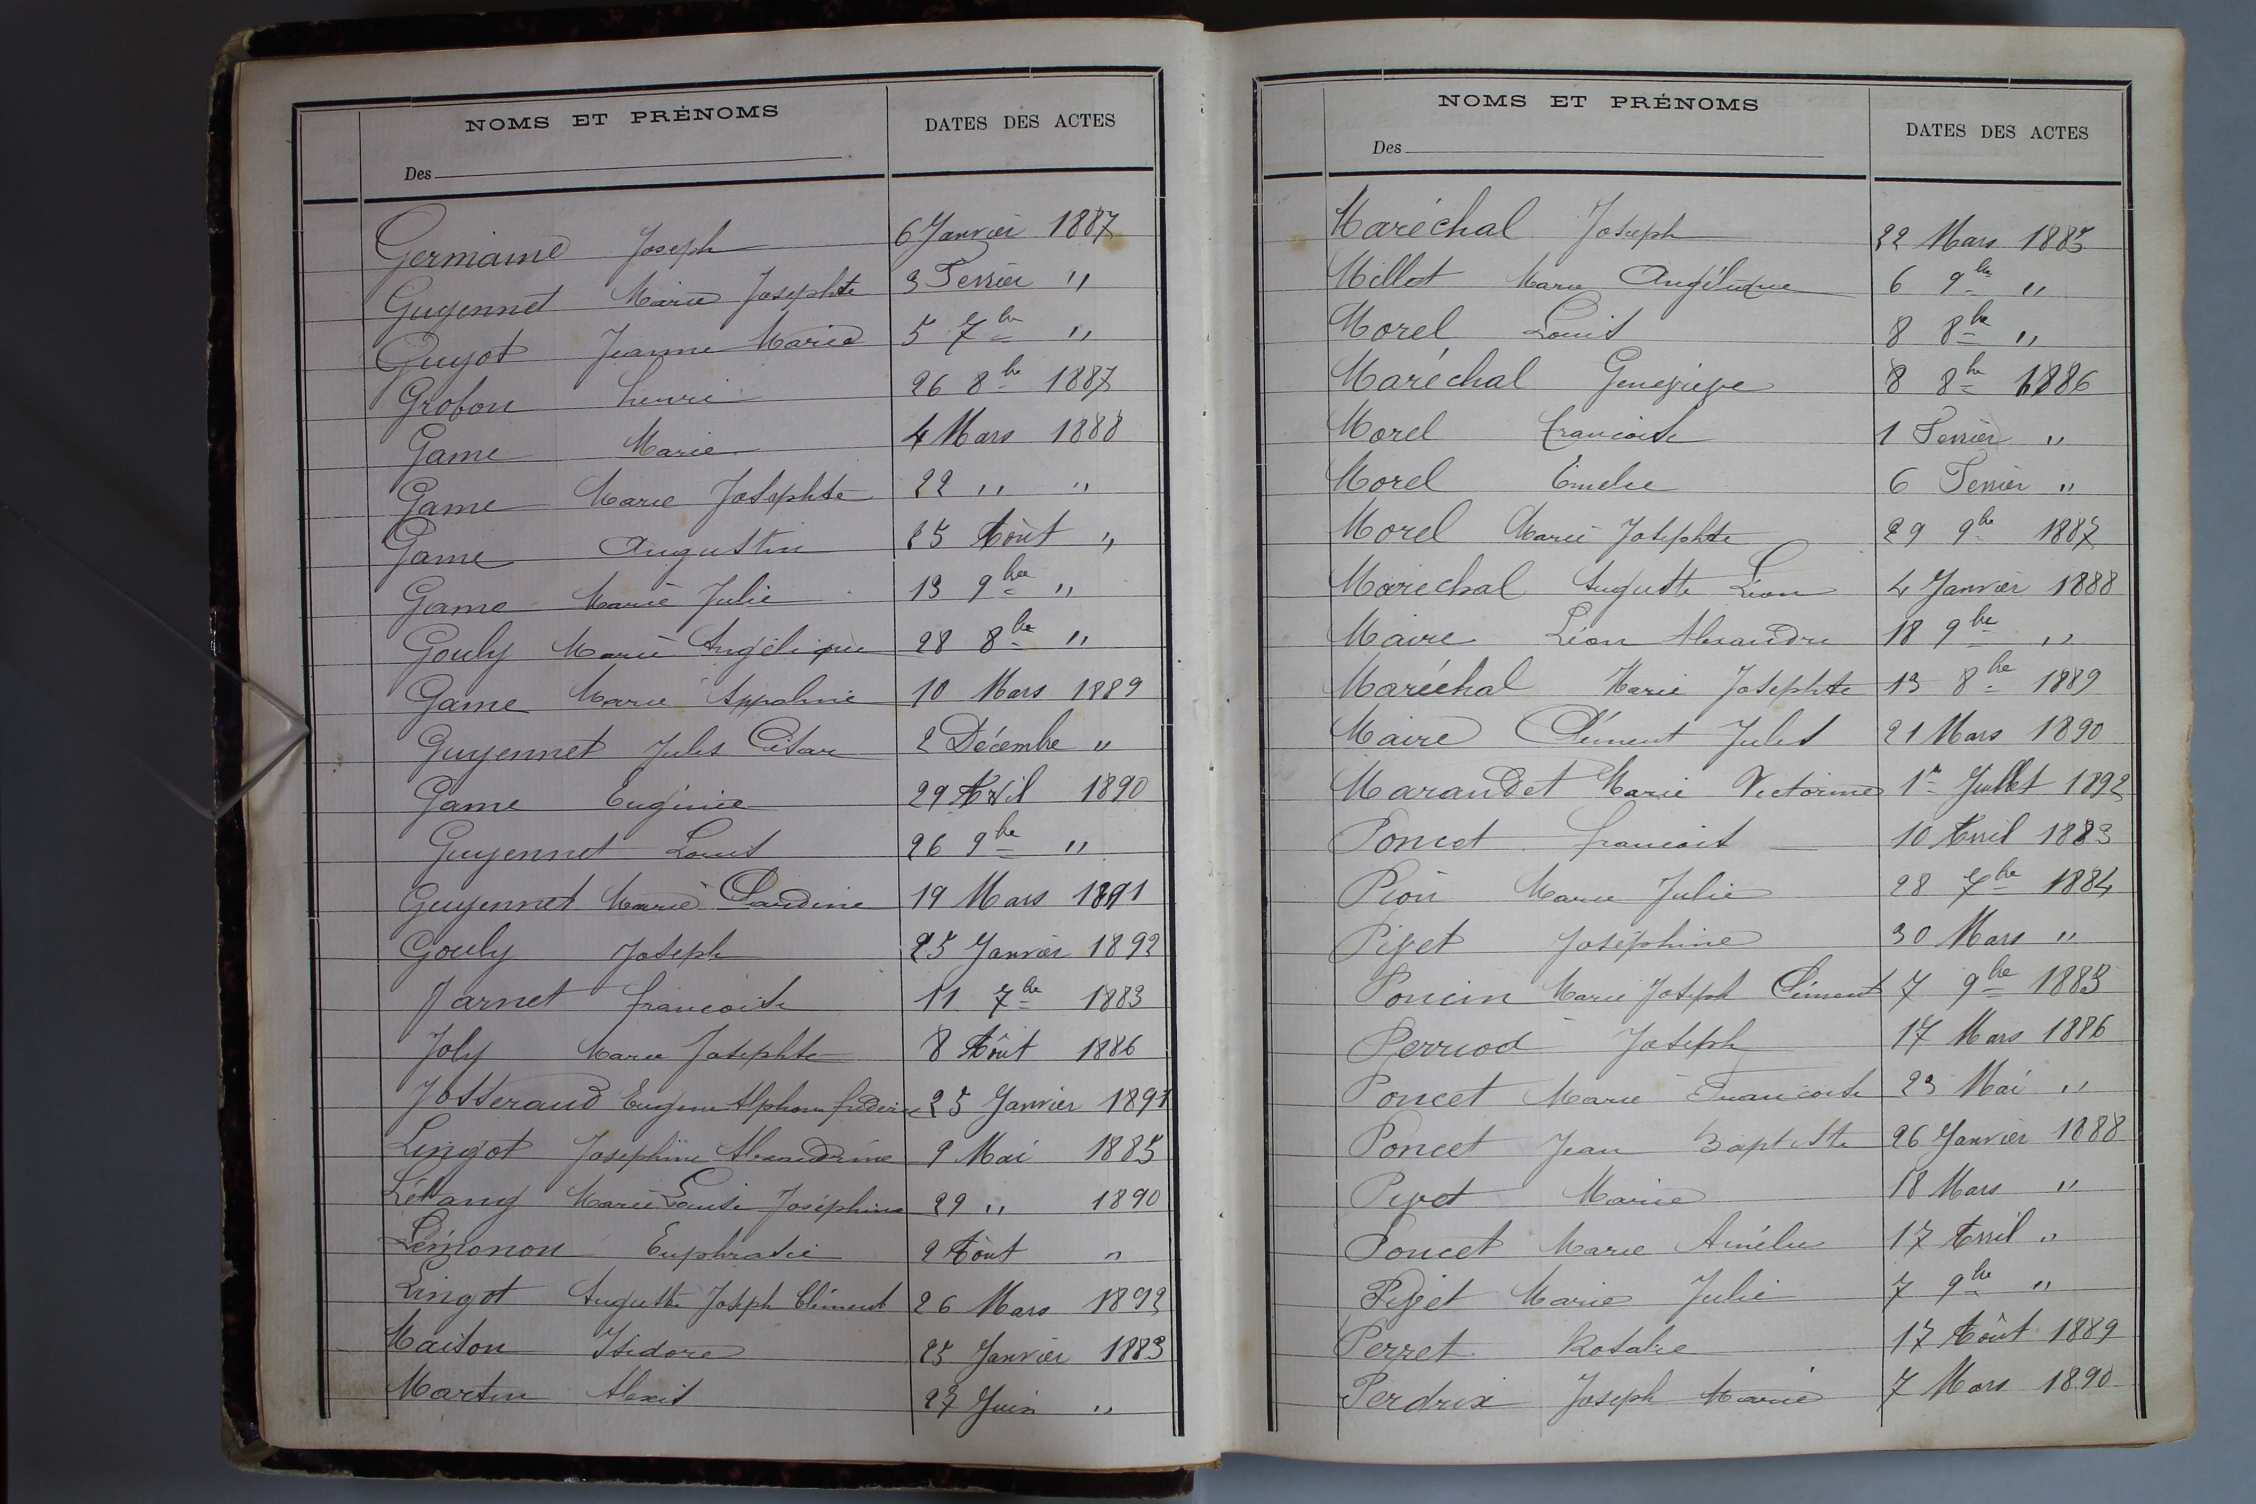 NOMS ET PRÉNOMS
DATES DES ACTES
Des
Germaine Joseph 6 Janvier 1887
Guyennet Marie Josephte 3 Fevrier "
Guyot Jeanne Marie 5 7bre "
Grobon henri 26 8bre 1887
Game Marie 4 Mars 1888
Game Marie Josephte 22 " "
Game Augustin 25 Août "
Game Marie Julie 13 9bre "
Gouly Marie Angélique 28 8bre "
Game Marie Appolinie 10 Mars 1889
Guyennet Jules César 2 Décembre "
Game Eugénie 29 Avril 1890
Guyennet Louis 26 9bre "
Guyennet Marie Claudine 19 Mars 1891
Gouly Joseph 25 Janvier 1892
Jarnet francoise 11 7bre 1883
Joly Marie Josephte 8 Août 1886
Josserand Eugene Alphonse frederic 25 Janvier 1891
Lingot Josephine Alexandrine 9 Mai 1885
Létang Marie Louise Joséphine 29 " 1890
Lémonon Euphrasie 2 Août "
Lingot Auguste Joseph Clément 26 Mars 1892
Maison Isidore 25 Janvier 1883
Martin Alexis 27 Juin "
NOMS ET PRÉNOMS
DATES DES ACTES
Des
Maréchal Joseph 22 Mars 1885
Millot Marie Angélique 6 9bre "
Morel Louis 8 8bre "
Maréchal Genevieve 8 8bre 1886
Morel francoise 1 Fevrier "
Morel Emelie 6 Fevrier "
Morel Marie Josephte 29 9bre 1887
Maréchal Auguste Léon 4 Janvier 1888
Maire Léon Alexandre 18 9bre "
Maréchal Marie Josephte 13 8bre 1889
Maire Clément Jules 21 Mars 1890
Marandet Marie Victorine 1er Juillet 1892
Poncet francois 10 Avril 1883
Pion Marie Julie 28 7bre 1884
Pivet Joséphine 30 Mars "
Poncin Marie Joseph Clément 7 9bre 1885
Perriod Joseph 17 Mars 1886
Poncet Marie Francoise 23 Mai "
Poncet Jean Baptiste 26 Janvier 1888
Pivet Marie 18 Mars "
Poncet Marie Amélie 17 Avril "
Pivet Marie Julie 7 9bre "
Perret Rosalie 17 Août 1889
Perdrix Joseph Marie 7 Mars 1890